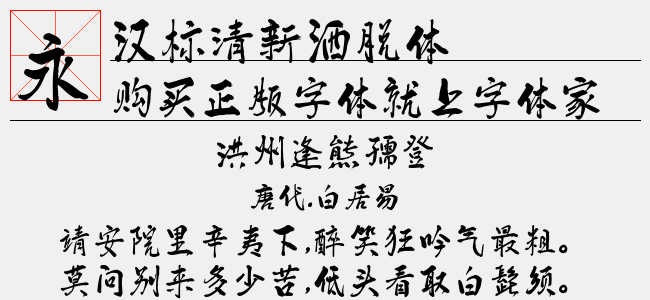 永
汉标清新洒脱体
购买正版字体就上字体家
洪州逢熊孺登
唐代.白居易
靖安院里辛夷下,醉笑狂吟气最粗。
莫问别来多少苦,低头看取白髭须。